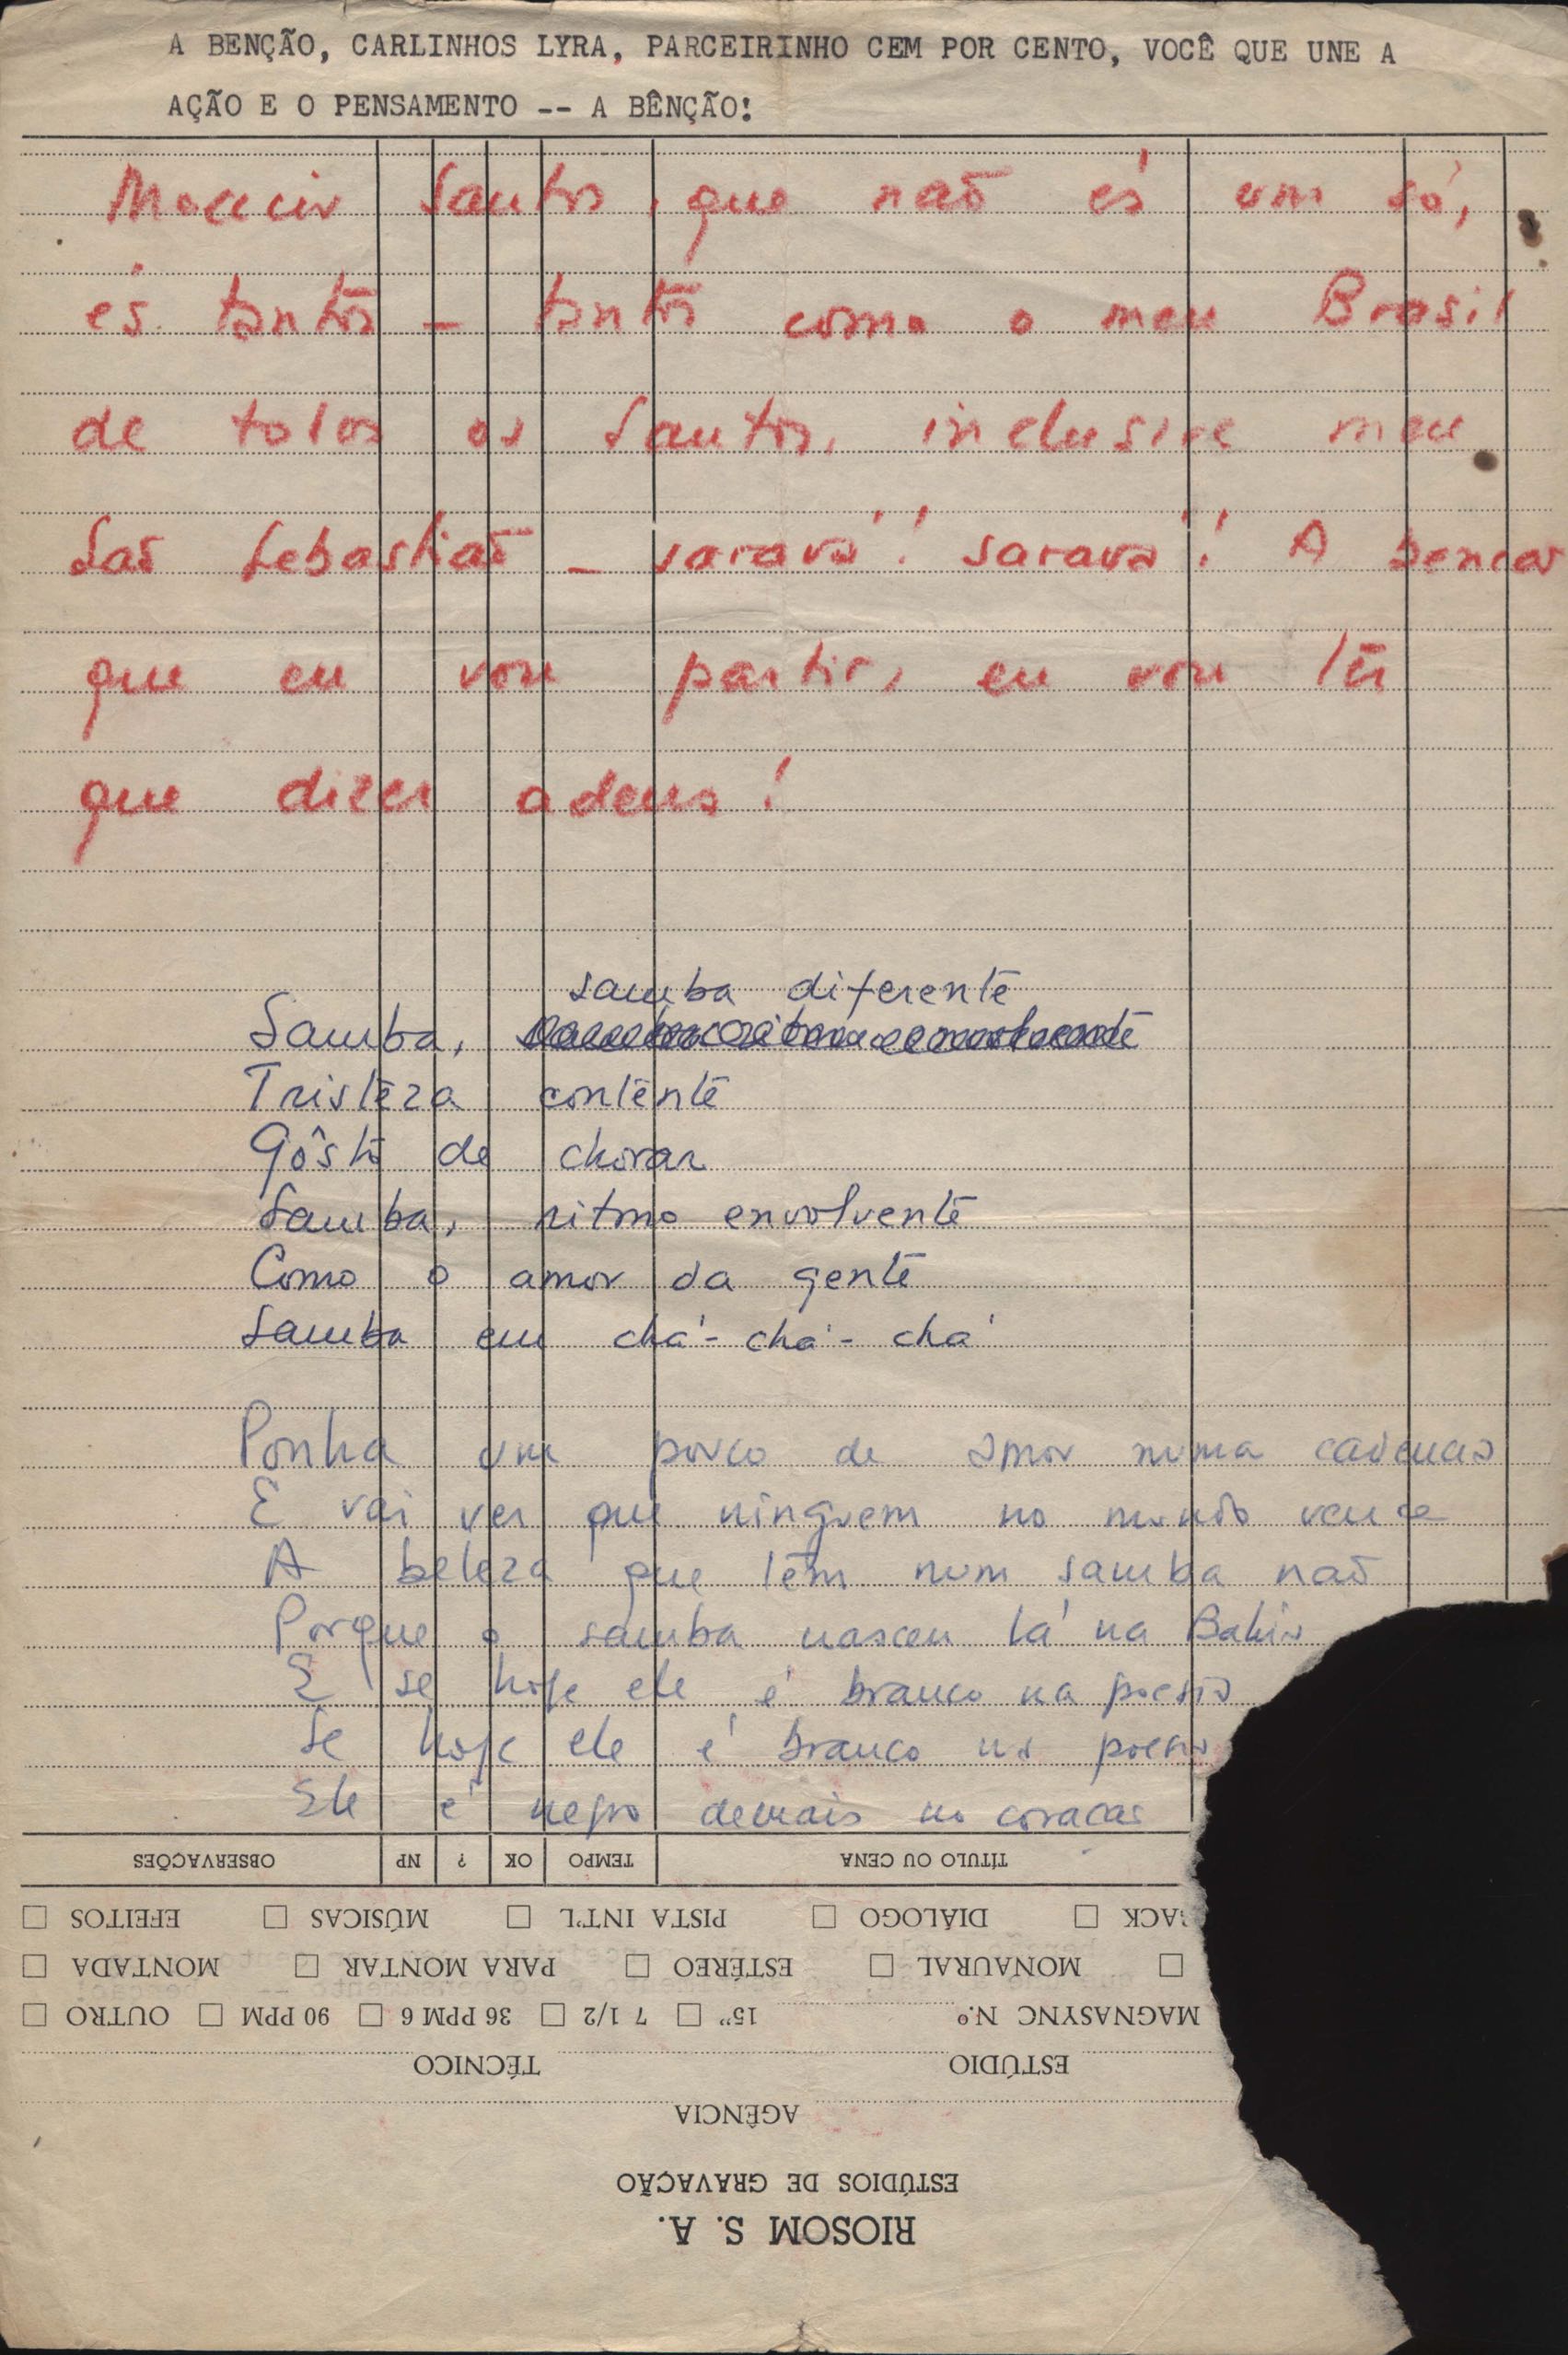 A BENÇÃO, CARLINHOS LYRA, PARCEIRINHO CEM POR CENTO, VOCÊ QUE UNE A
AÇÃO E O PENSAMENTO -- A BÊNÇÃO!
Moacir Santos, que não és um só,
és tantos – tantos como o meu Brasil
de todos os Santos, inclusive meu
São Sebastião – saravá! saravá! A bencão
que eu vou partir, eu vou ter
que dizer adeus!
samba diferente
Samba,
Tristeza contente
Gôsto de chorar
Samba, ritmo envolvente
Como o amor da gente
Samba em chá-chá-chá
Ponha um pouco de amor numa cadencia
E vai ver que ninguem no mundo vence
A beleza que tem num samba não
Porque o samba nasceu lá na Bahia
E se hoje ele é branco na poesia
Se hoje ele é branco na poesia
Ele é negro demais no coracao
OBSERVAÇÕES NP ? OK TEMPO TÍTULO OU CENA
EFEITOS MÚSICAS PISTA INT'L DIÁLOGO ACK
MONTADA PARA MONTAR ESTÉREO MONAURAL
OUTRO 90 PPM 36 PPM 6 7 1/2 15" MAGNASYNC N.º
TÉCNICO ESTÚDIO
AGÊNCIA
ESTÚDIOS DE GRAVAÇÃO
RIOSOM S. A.